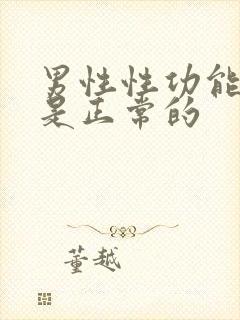 男性性功能
是正常的
董越